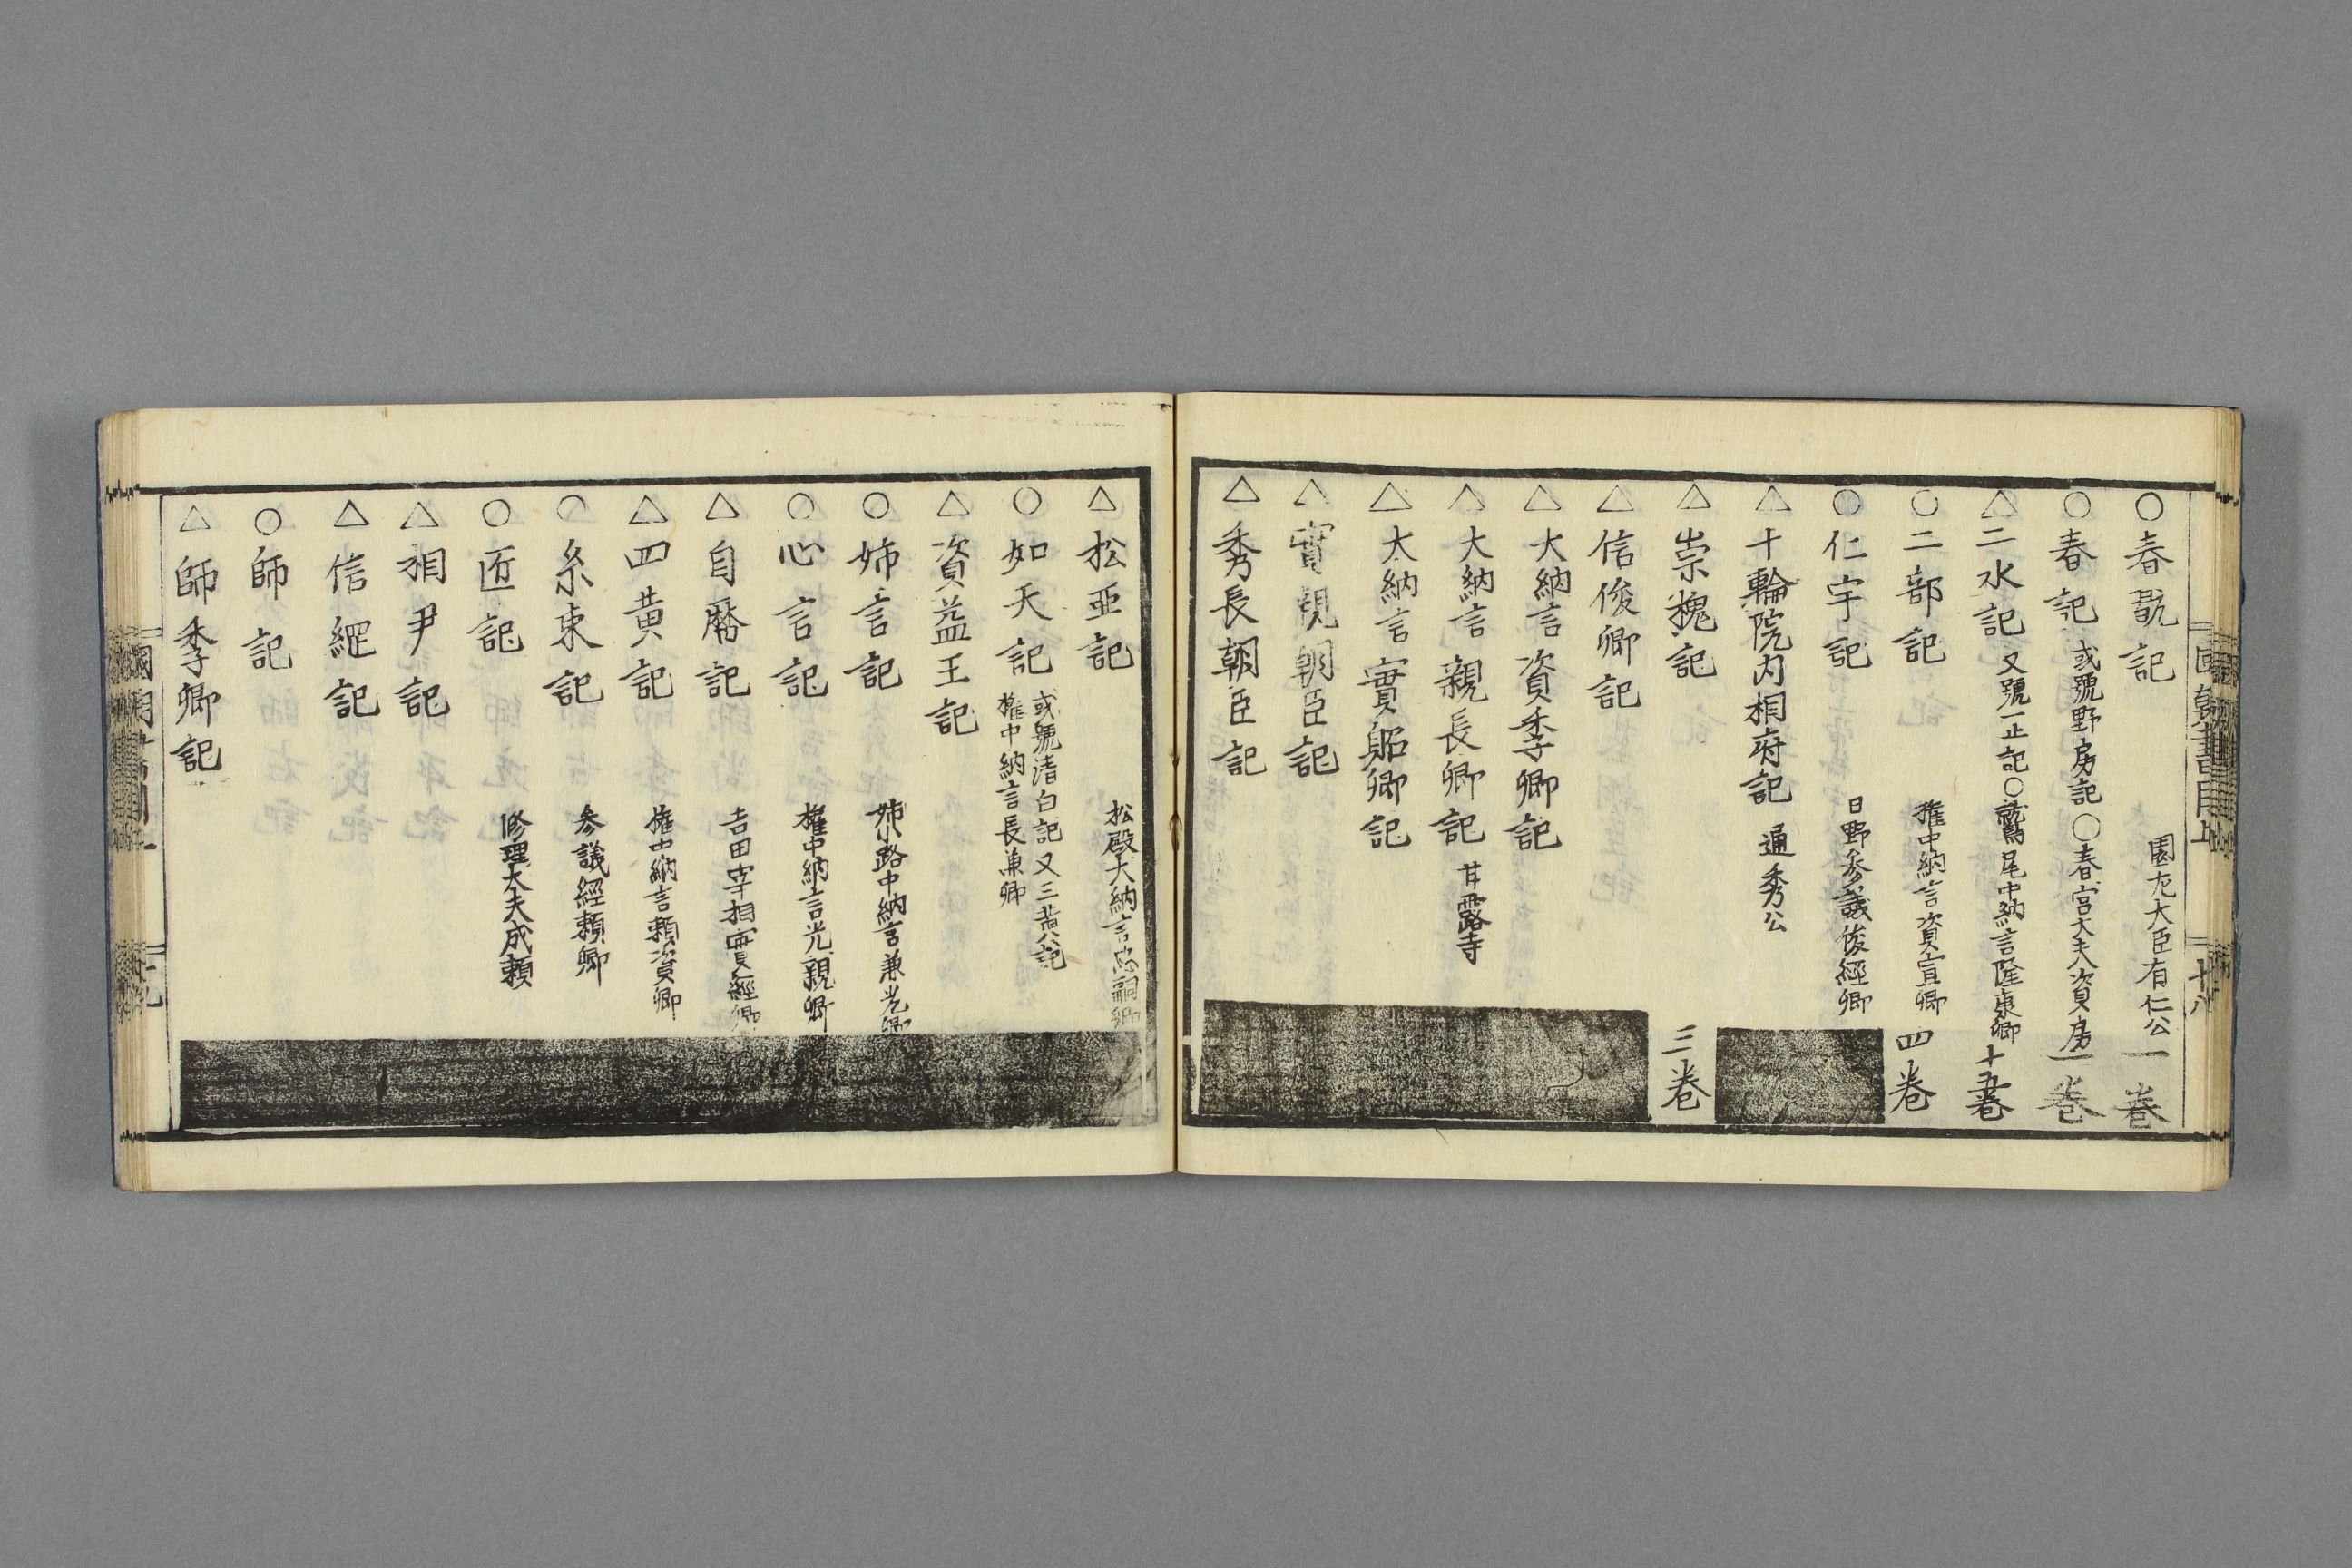 ○春翫記 園左大臣有仁公 一巻
○春記 或號野房記○春宮大夫資房 一巻
△二水記 又號一止記○鷲尾中納言隆康卿 十五巻
○二部記 権中納言資宣卿 四巻
○仁宇記 日野参議俊經卿
△十輪院内相府記 通秀公
△崇槐記 三巻
△信俊卿記
△大納言資季卿記
△大納言親長卿記 甘露寺
△大納言實躬卿記
△實親朝臣記
△秀長朝臣記
國朝書目上 十八
△松亜記 松殿大納言忠嗣卿
○如天記 或號清白記又三黄八記
権中納言長兼卿
△資益王記
○姉言記 姉小路中納言兼光卿
○心言記 権中納言光親卿
△自暦記 吉田宰相實經卿
△四黄記 権中納言頼資卿
○糸束記 参議經頼卿
○匠記 修理大夫成頼
△相尹記
△信經記
○師記
△師季卿記